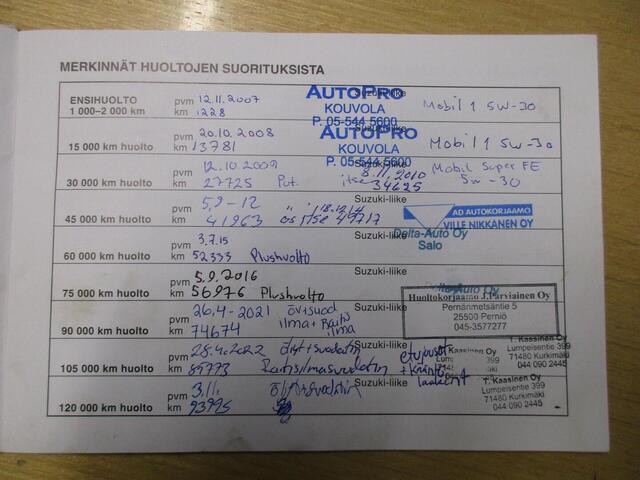 MERKINNÄT HUOLTOJEN SUORITUKSISTA
ENSIHUOLTO pvm 12.11.2007 Suzuki-liike
1 000–2 000 km km 1228 Mobil 1 5W-30
AUTOPRO
KOUVOLA
P. 05-544 5600
pvm 20.10.2008 Suzuki-liike
15 000 km huolto km 13781 Mobil 1 5W-30
AUTOPRO
KOUVOLA
P. 05-544 5600
pvm 12.10.2009 8.11.2010 Mobil Super FE
30 000 km huolto km 27725 itse 34625 5W-30
pvm 5,9-12 18.12.14 Suzuki-liike
45 000 km huolto km 41963 itse 49717
AD AUTOKORJAAMO
VILLE NIKKANEN OY
pvm 3.7.15 Suzuki-liike
60 000 km huolto km 52333 Plushuolto
Delta-Auto Oy
Salo
pvm 5.9.2016 Suzuki-liike
75 000 km huolto km 56976 Plushuolto
Delta-Auto Oy
pvm 26.4-2021 öv+suod Suzuki-liike
90 000 km huolto km 74674 ilma+ ilma
Huoltokorjaamo J.Parviainen Oy
Pernänmetsäntie 5
25500 Perniö
045-3577277
pvm 28.4.2022 Suzuki-liike
105 000 km huolto km 89773 Raitisilmasuodatin
T. Kaasinen Oy
Lumpeisentie 399
71480 Kurkimäki
044 090 2445
pvm 3.11. Suzuki-liike
120 000 km huolto km 93995
T. Kaasinen Oy
Lumpeisentie 399
71480 Kurkimäki
044 090 2445